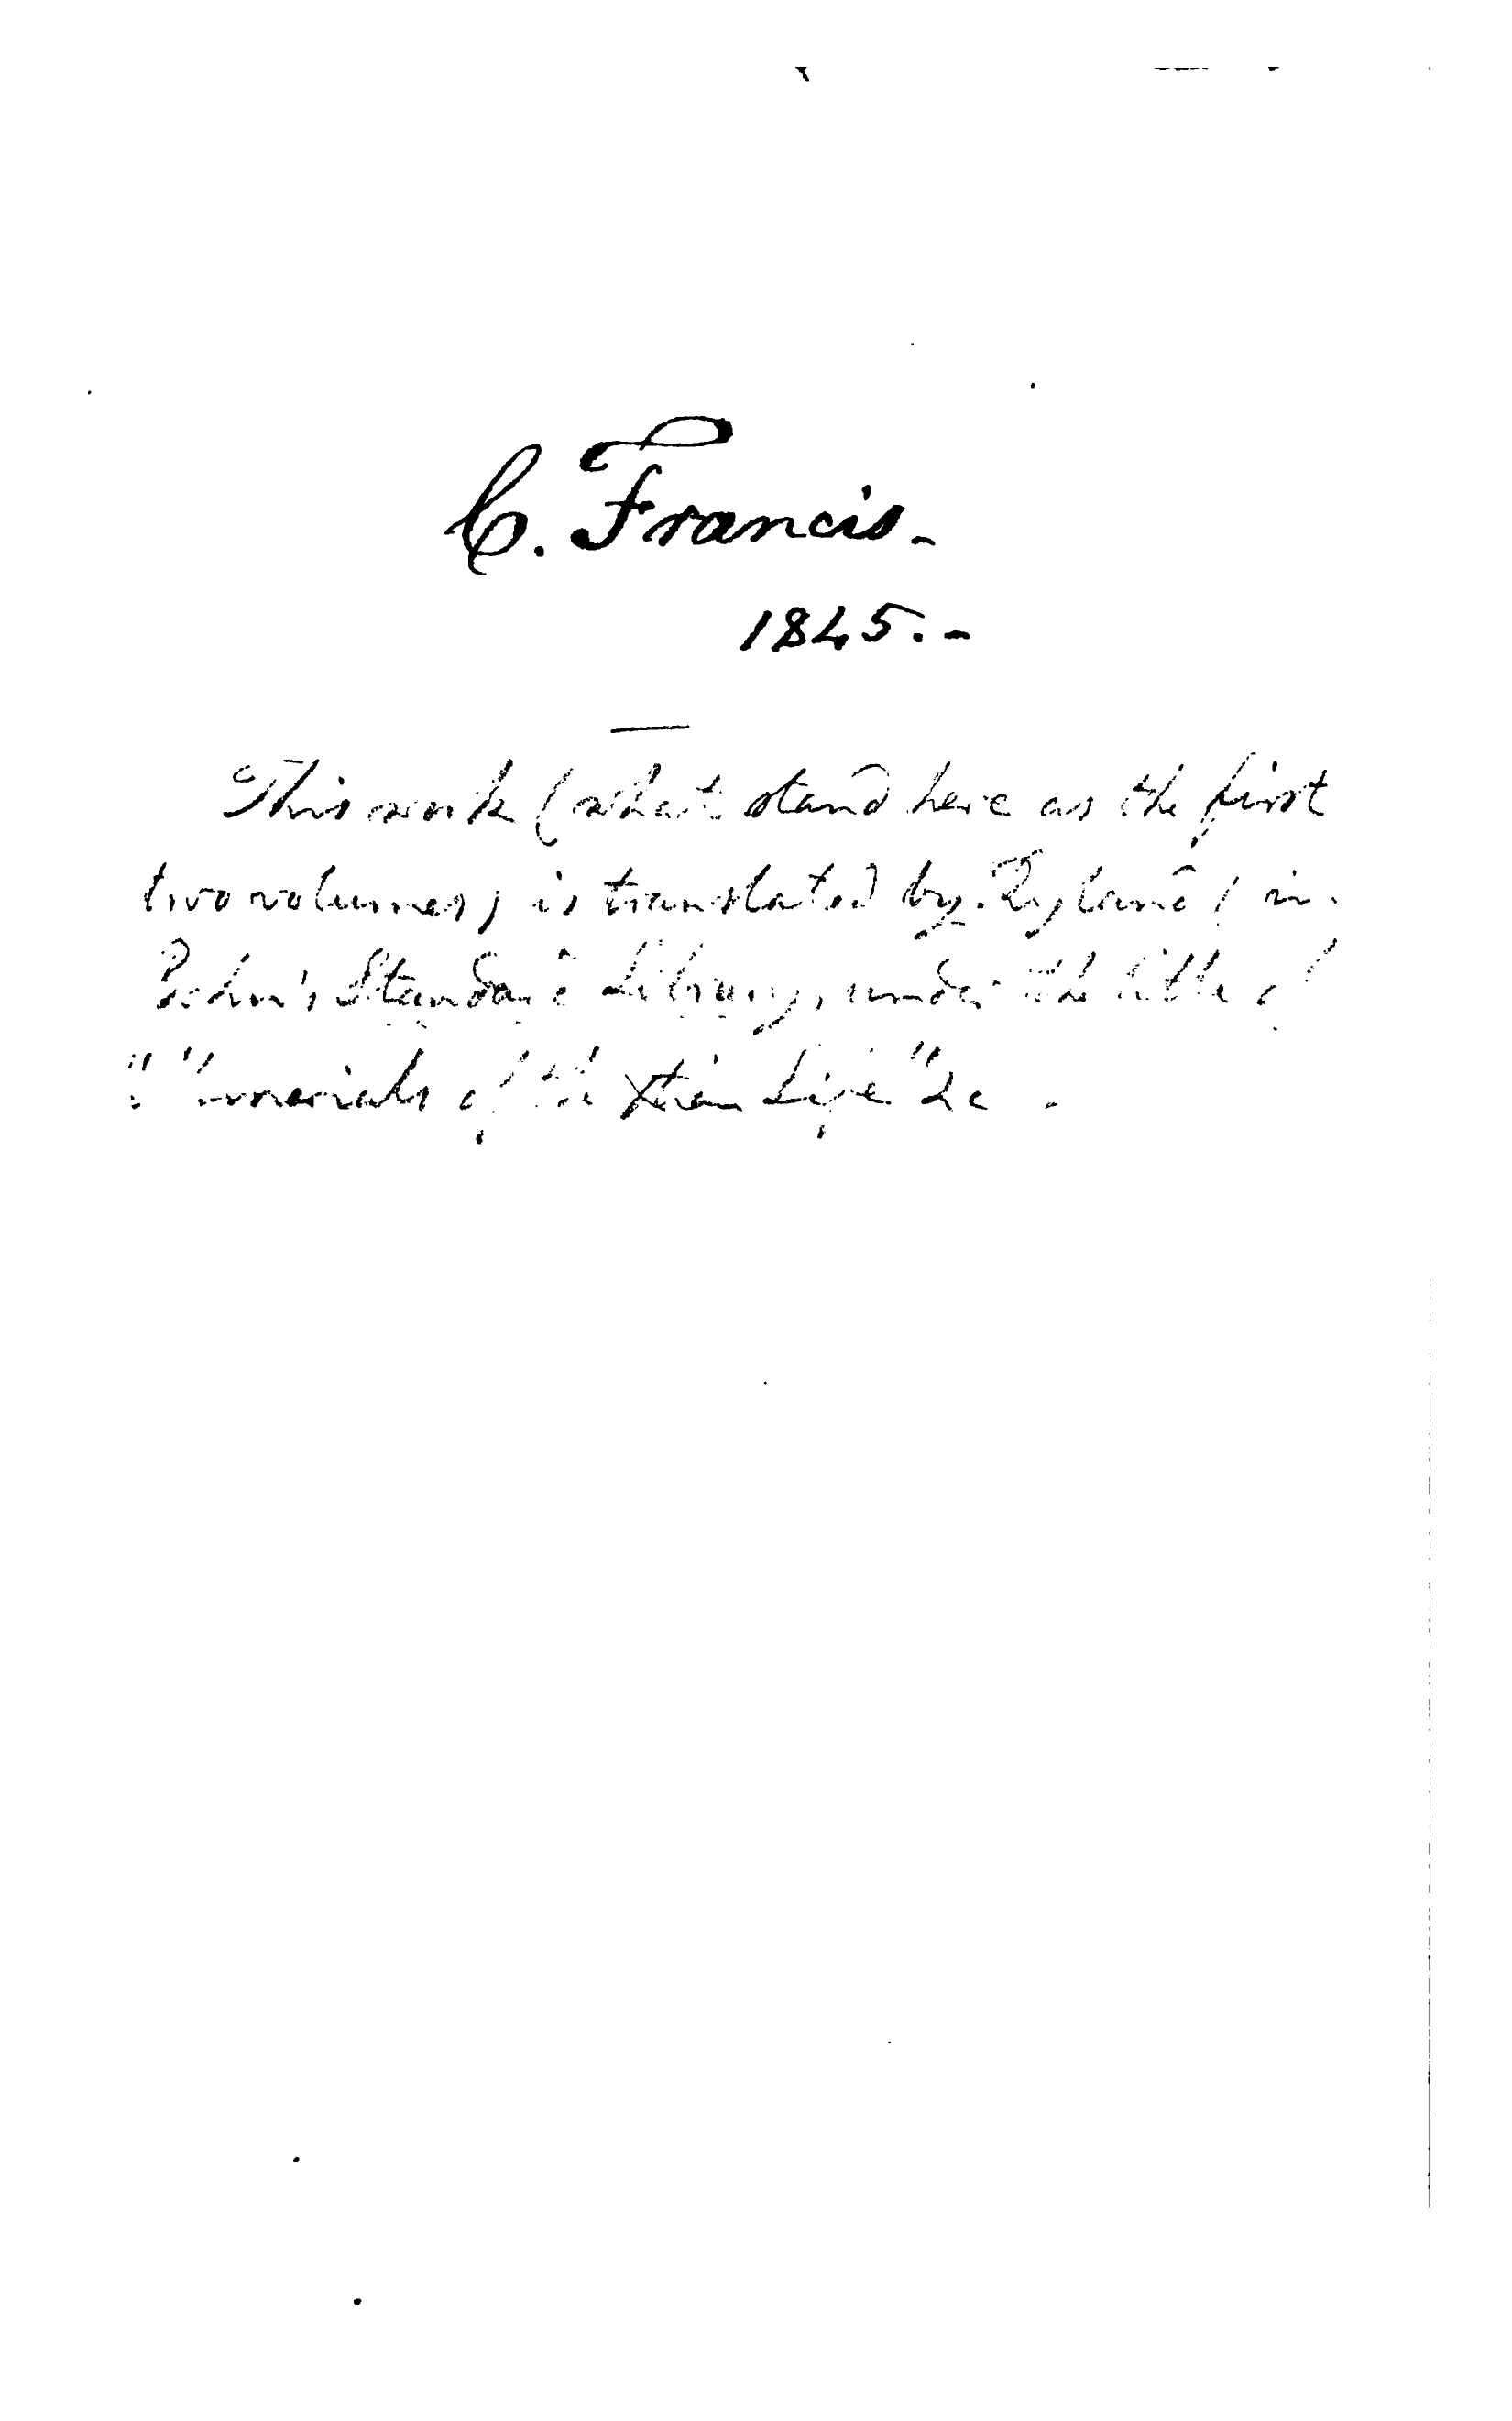 C. Francis.-
1845.-
This work (what stand here as the first
two volumes) is translated by Ryland, in
Bohn's Standard Library, under the title of
"Memorials of the Xtian Life" &c.